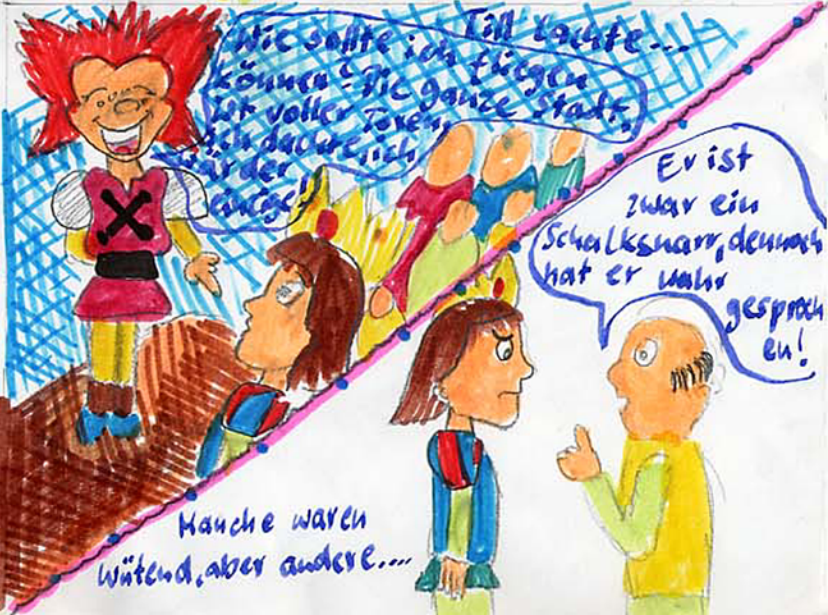 Till lachte...
Wie sollte ich fliegen
können? Die ganze Stadt
ist voller Toren,
ich dachte, ich
wär der
einzige!
Er ist
zwar ein
Schalksnarr, dennoch
hat er wahr
gesproch
en!
Manche waren
wütend, aber andere....